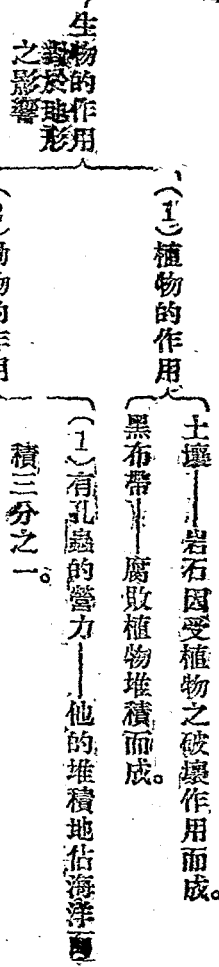 生物的作用
對於地形
之影響
(1)植物的作用
土壤——岩石因受植物之破壞作用而成。
黑布帶——腐敗植物堆積而成。
動物的作用
(1)有孔蟲的營力——他的堆積地佔海洋面
積三分之一。